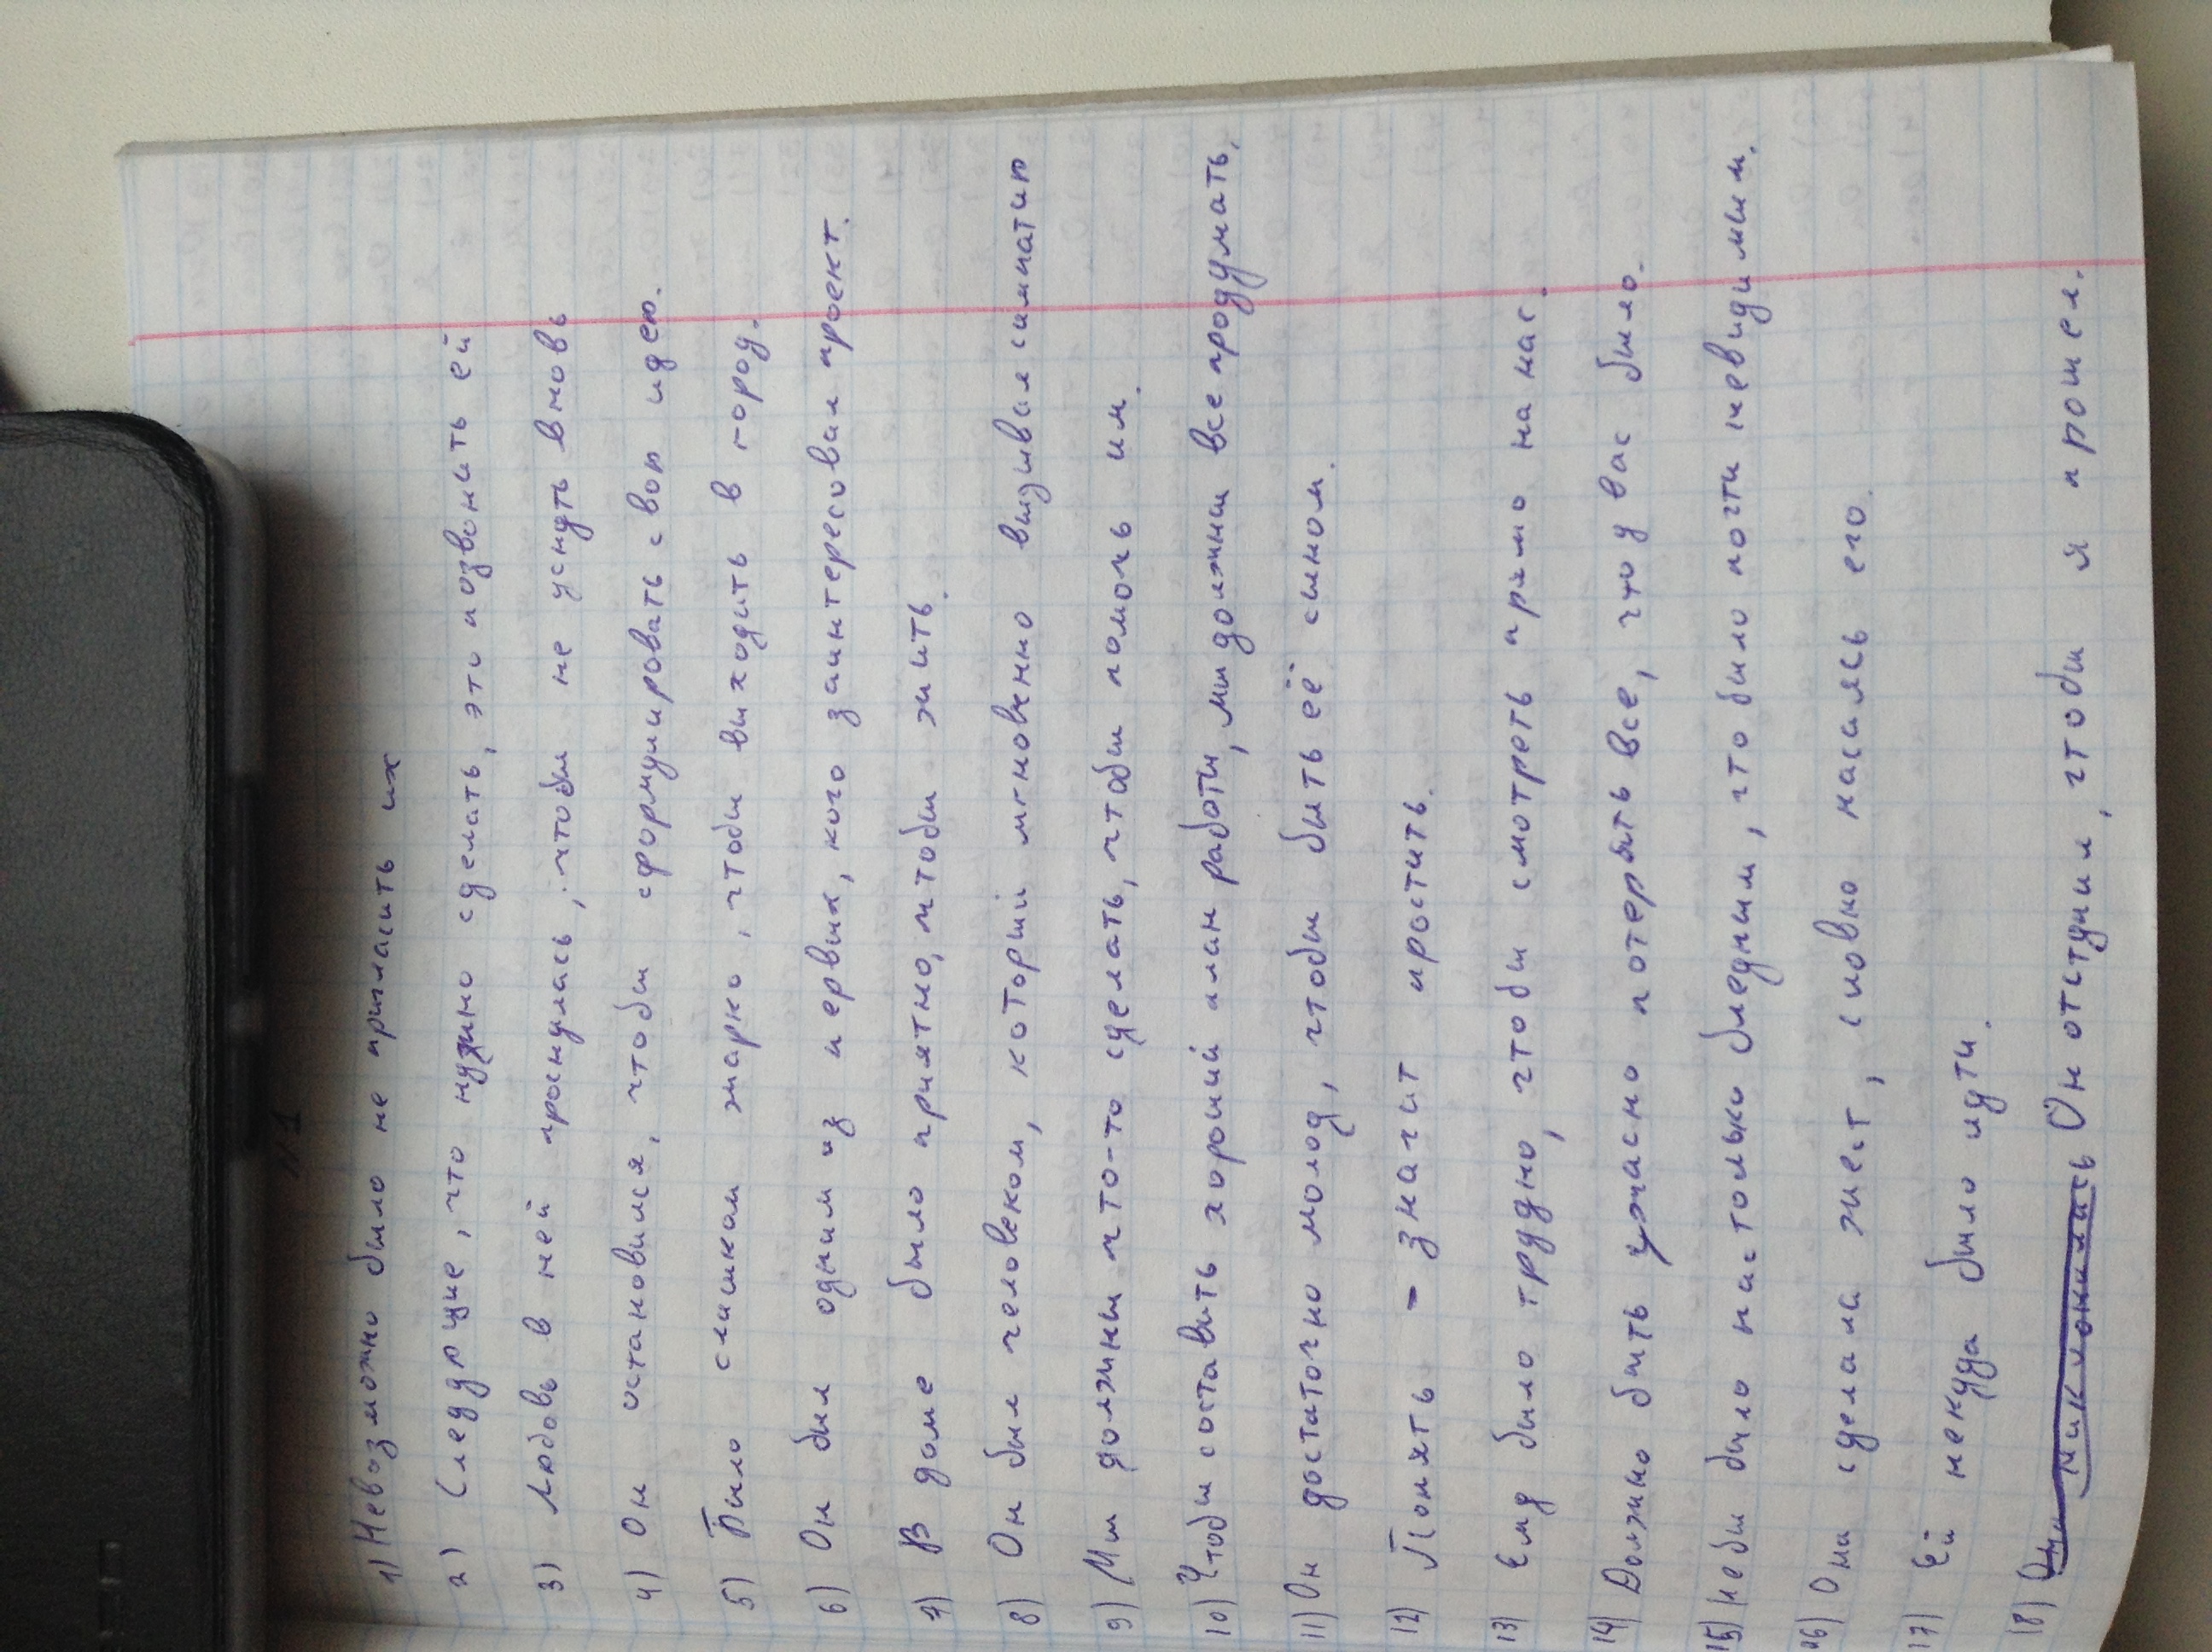 N1
1) Невозможно было не пригласить их
2) Следующие, что нужно сделать, это позвонить ей
3) Любовь в ней проснулась, чтобы не уснуть вновь
4) Он остановился, чтобы сформулировать свою идею.
5) Было слишком жарко, чтобы выходить в город.
6) Он был одним из первых, кого заинтересовал проект.
7) В доме было приятно, чтобы жить.
8) Он был человеком, который мгновенно вызывал симпатию
9) Мы должны что-то сделать, чтобы помочь им.
10) Чтобы составить хороший план работы, мы должны все продумать.
11) Он достаточно молод, чтобы быть её сыном.
12) Понять - значит простить.
13) Ему было трудно, чтобы смотреть прямо на нас.
14) Должно быть ужасно потерять все, что у вас было.
15) Небы было настолько бледным, что было почти невидимым.
16) Она сделала жест, словно касаясь его.
17) Ей некуда было идти.
18) Он отступил, чтобы я прошел.